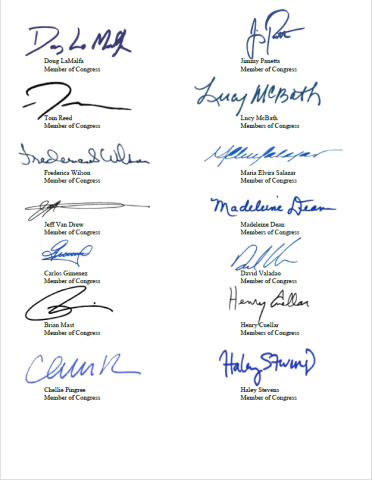 Doug LaMalfa
Doug LaMalfa
Member of Congress
Jimmy Panetta
Member of Congress
Tom Reed
Member of Congress
Lucy McBath
Lucy McBath
Member of Congress
Frederica Wilson
Frederica Wilson
Member of Congress
Maria Elvira Salazar
Member of Congress
Jeff Van Drew
Member of Congress
Madeleine Dean
Madeleine Dean
Members of Congress
Carlos Gimenez
Member of Congress
David Valadao
Member of Congress
Brian Mast
Member of Congress
Henry Cuellar
Henry Cuellar
Members of Congress
Chellie Pingree
Member of Congress
Haley Stevens
Haley Stevens
Member of Congress